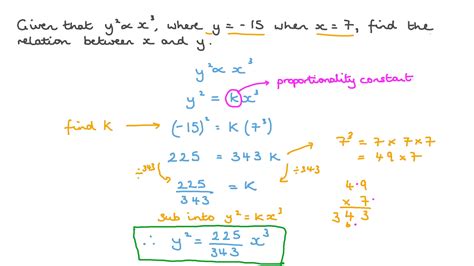 Given that y² ∝ x³, where y = -15 when x = 7, find the
relation between x and y.
y² ∝ x³
y² = kx³
proportionality constant
find K → (-15)² = K (7³)
225 = 343 K
÷343
÷343
225/343 = K
sub into y² = kx³
∴ y² = 225/343 x³
7³ = 7 × 7 × 7
= 49 × 7
49
× 7
343
6